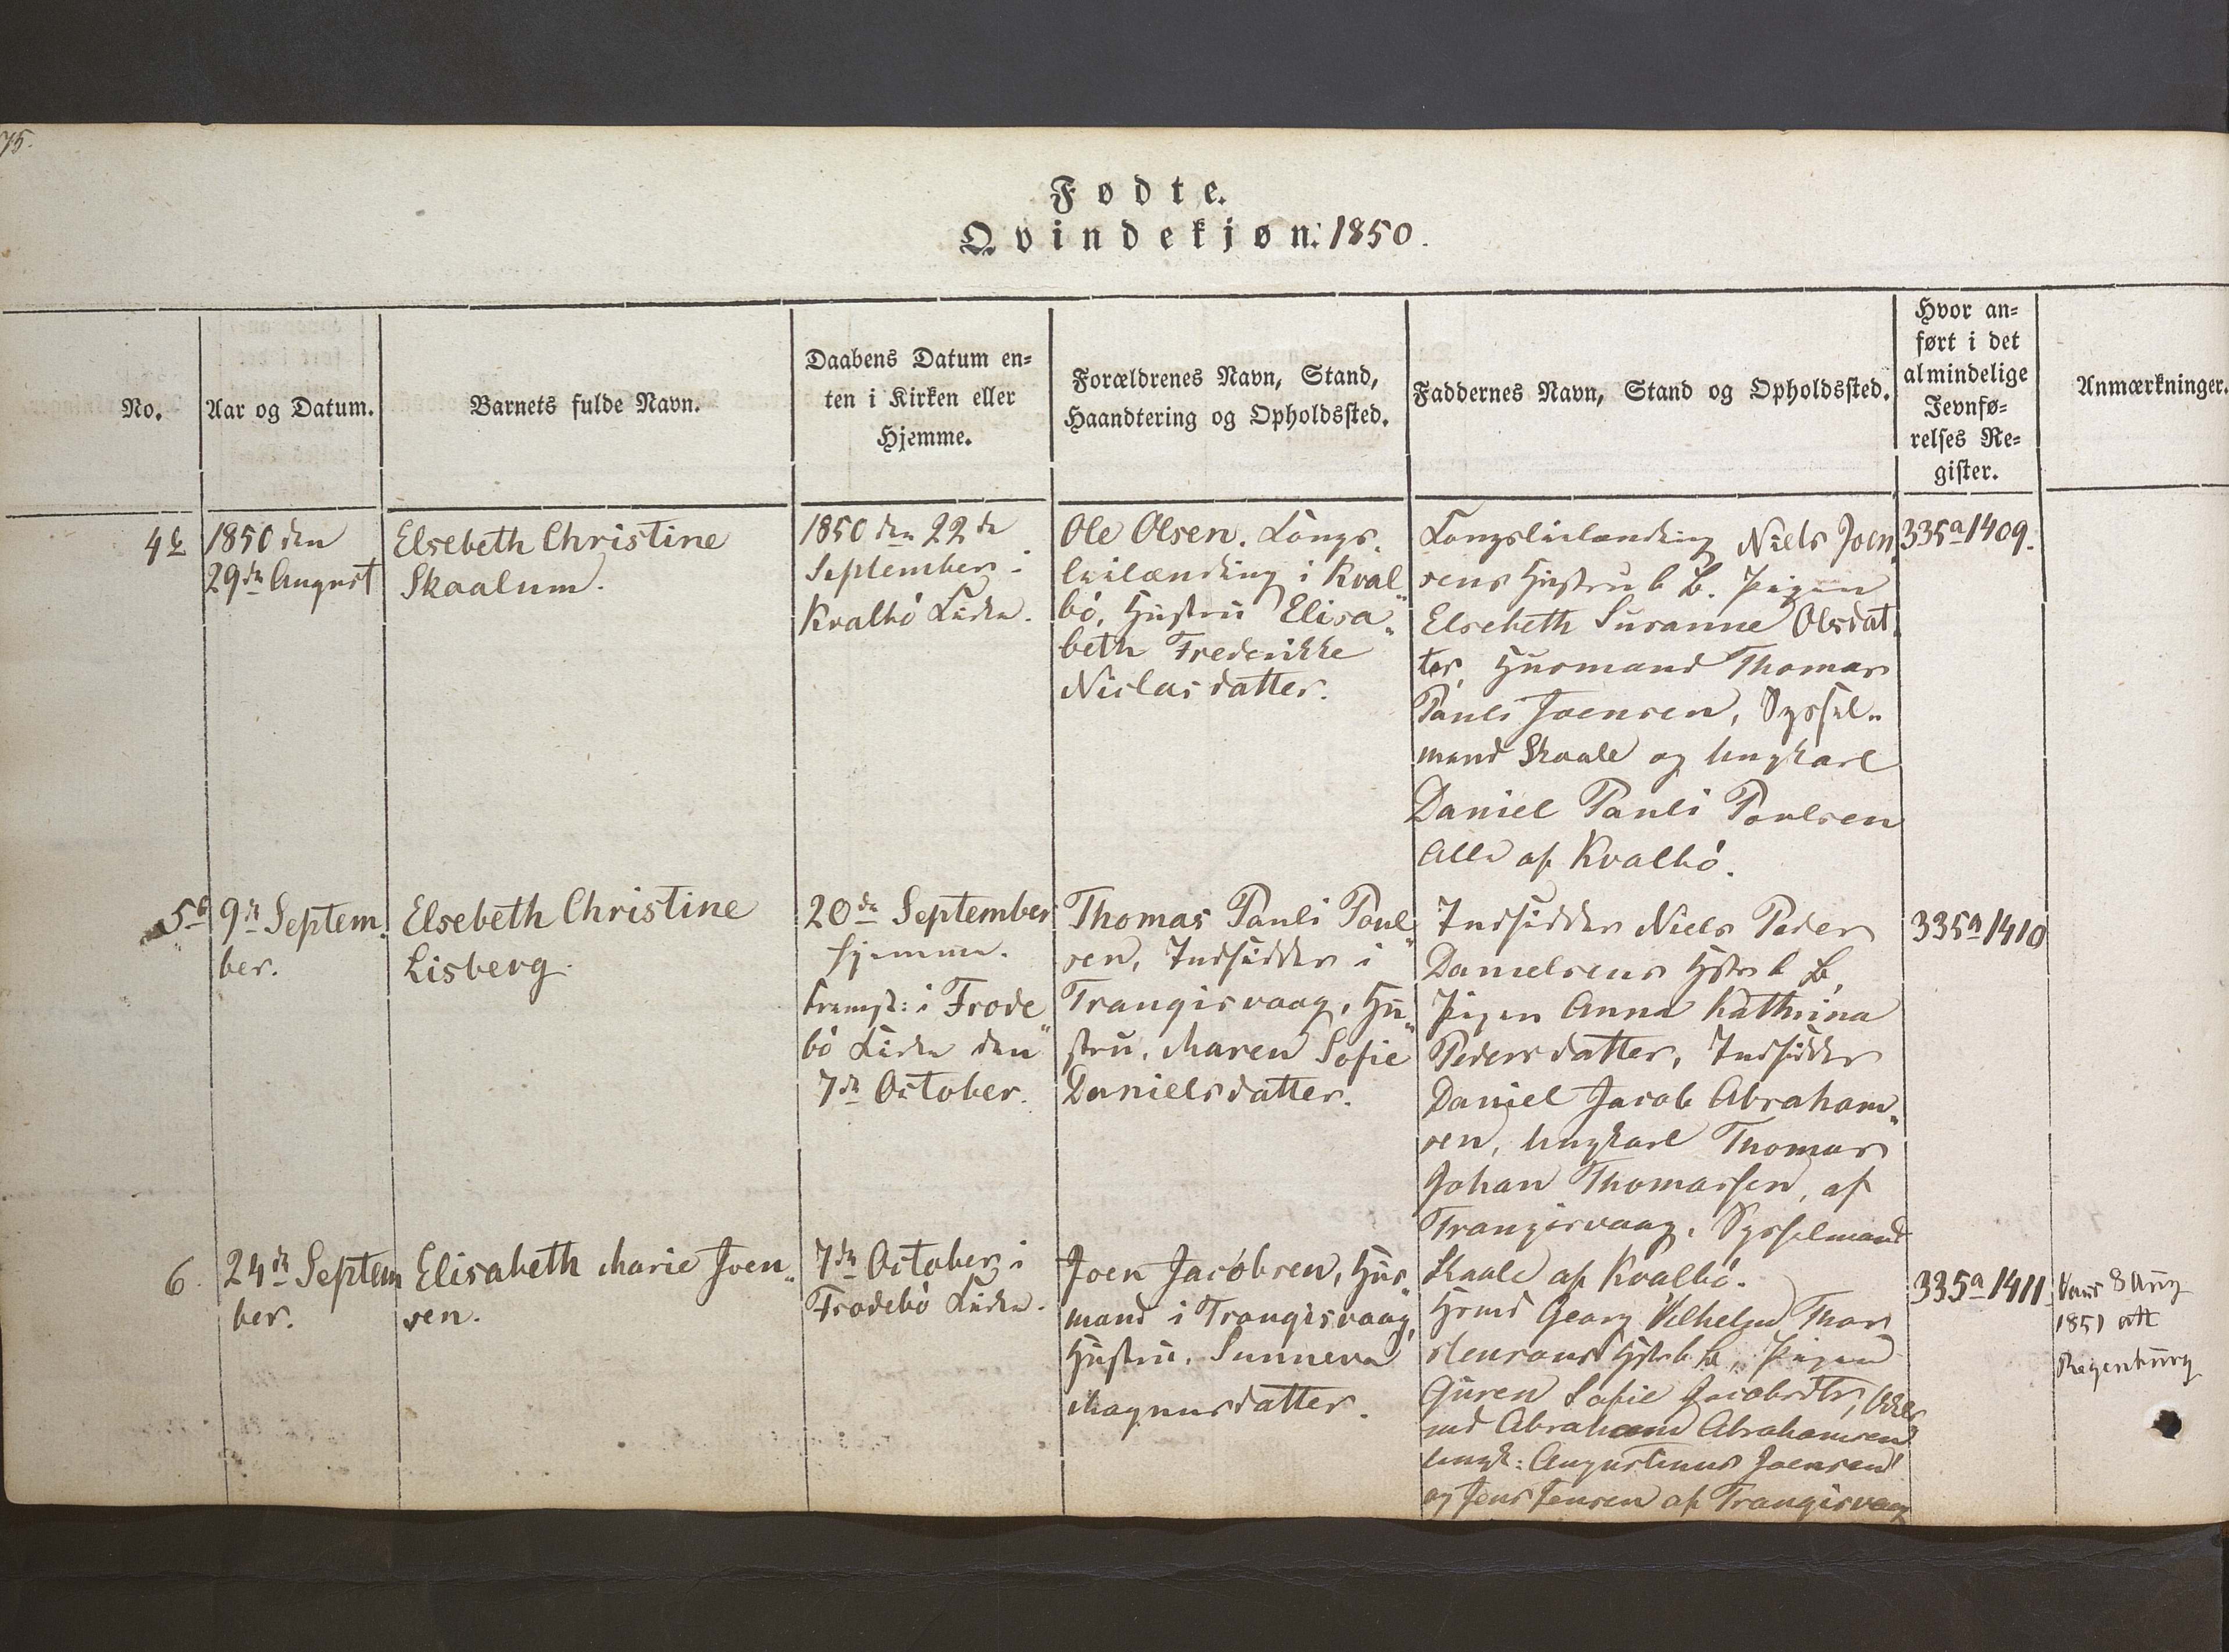 75.
Fødte.
Qvindekjøn. 1850.
No.
Aar og Datum.
Barnets fulde Navn.
Daabens Datum en=
ten i Kirken eller
Hjemme.
Forældrenes Navn, Stand,
Haandtering og Opholdssted.
Faddernes Navn, Stand og Opholdssted.
Hvor an=
ført i det
almindelige
Jevnfø=
relses Re=
gister.
Anmærkninger.
4
1850 den
29de August
Elsebeth Christine
Skaalum.
1850 den 22de
September i
Kvalbö Kirke.
Ole Olsen. Kongs„
leilænding i Kval„
bö, Hustru Elisa„
beth Frederikke
Niclasdatter.
Kongsleilænding Niels Joen„
sens Hustru b B. Pigen
Elsebeth Susanne Olsdat„
ter, Husmand Thomas
Pauli Joensen, Syssel„
mand Skaale og Ungkarl
Daniel Pauli Poulsen
Alle af Kvalbö.
335a 1409.
5
9de Septem„
ber.
Elsebeth Christine
Lisberg.
20de September
hjemme.
Fremst: i Frode„
bö Kirke den
7de October.
Thomas Pauli Poul„
sen, Indsidder i
Trangisvaag, Hu„
stru, Maren Sofie
Danielsdatter.
Indsidder Niels Peder
Danielsens Hstr b B,
Pigen Anna Kathrina
Pedersdatter, Indsidder
Daniel Jacob Abraham„
sen, Ungkarl Thomas
Johan Thomassen, af
Trangisvaag, Sysselmand
Skaale af Kvalbö.
335a 1410
6.
24de Septem
ber.
Elisabeth Marie Joen„
sen.
7de October i
Frodebö Kirke.
Joen Jacobsen, Hus„
mand i Trangisvaag,
Hustru, Sunneva
Magnusdatter.
Hsmd Georg Vilhelm Thor
stensens Hstr b B, Pigen
Guren Sofie Jacobsdtr,
md Abraham Abrahamsen
Ungk: Augustinus Joensen
og Jens Jensen af Trangisvaag
335a 1411.
Vacc 8 Aug
1851 att
Regenburg